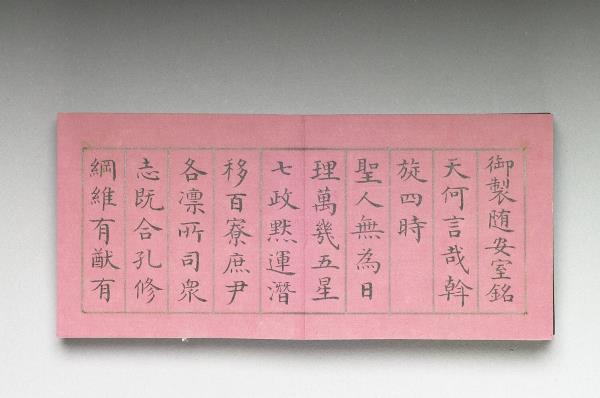 御製随安室銘
天何言哉斡
旋四時
聖人無為日
理萬幾五星
七政黙運潛
移百寮庶尹
各凛所司衆
志既合孔修
綱維有猷有